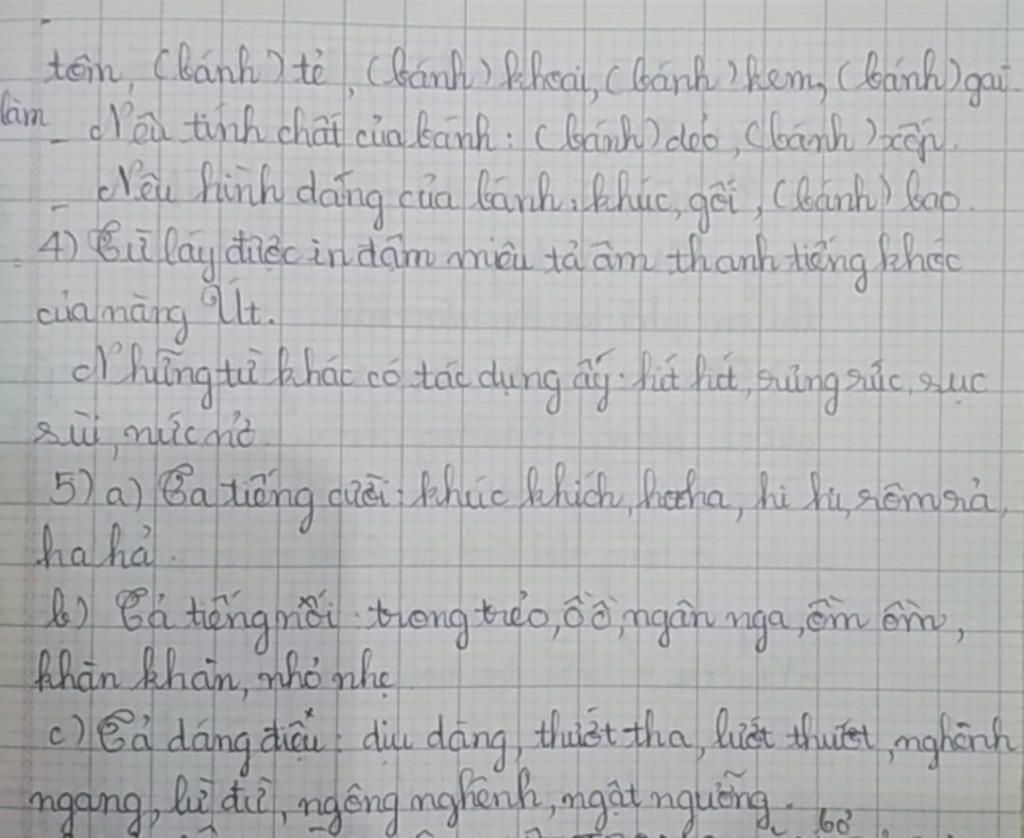 tôm, (bánh) tẻ, (bánh) khoai, (bánh) kem, (bánh) gai.
làm - Nêu tính chất của bánh: (bánh) dẻo, (bánh) xốp.
- Nêu hình dáng của bánh: khúc, gối, (bánh) bao.
4) Từ láy được in đậm miêu tả âm thanh tiếng khóc
của nàng Út.
Những từ khác có tác dụng ấy: hút hít, sưng sức, sục
sùi, nức nở.
5) a) Tả tiếng cười: khúc khích, ha ha, hi hi, rôm rả,
ha hả.
b) Tả tiếng nói: trong trẻo, ồ ồ, ngân nga, ồm ồm,
khàn khàn, nhỏ nhẹ
c) Tả dáng điệu: dịu dàng, thướt tha, lướt thướt, nghênh
ngang, lừ đừ, ngông nghênh, ngật ngưỡng.